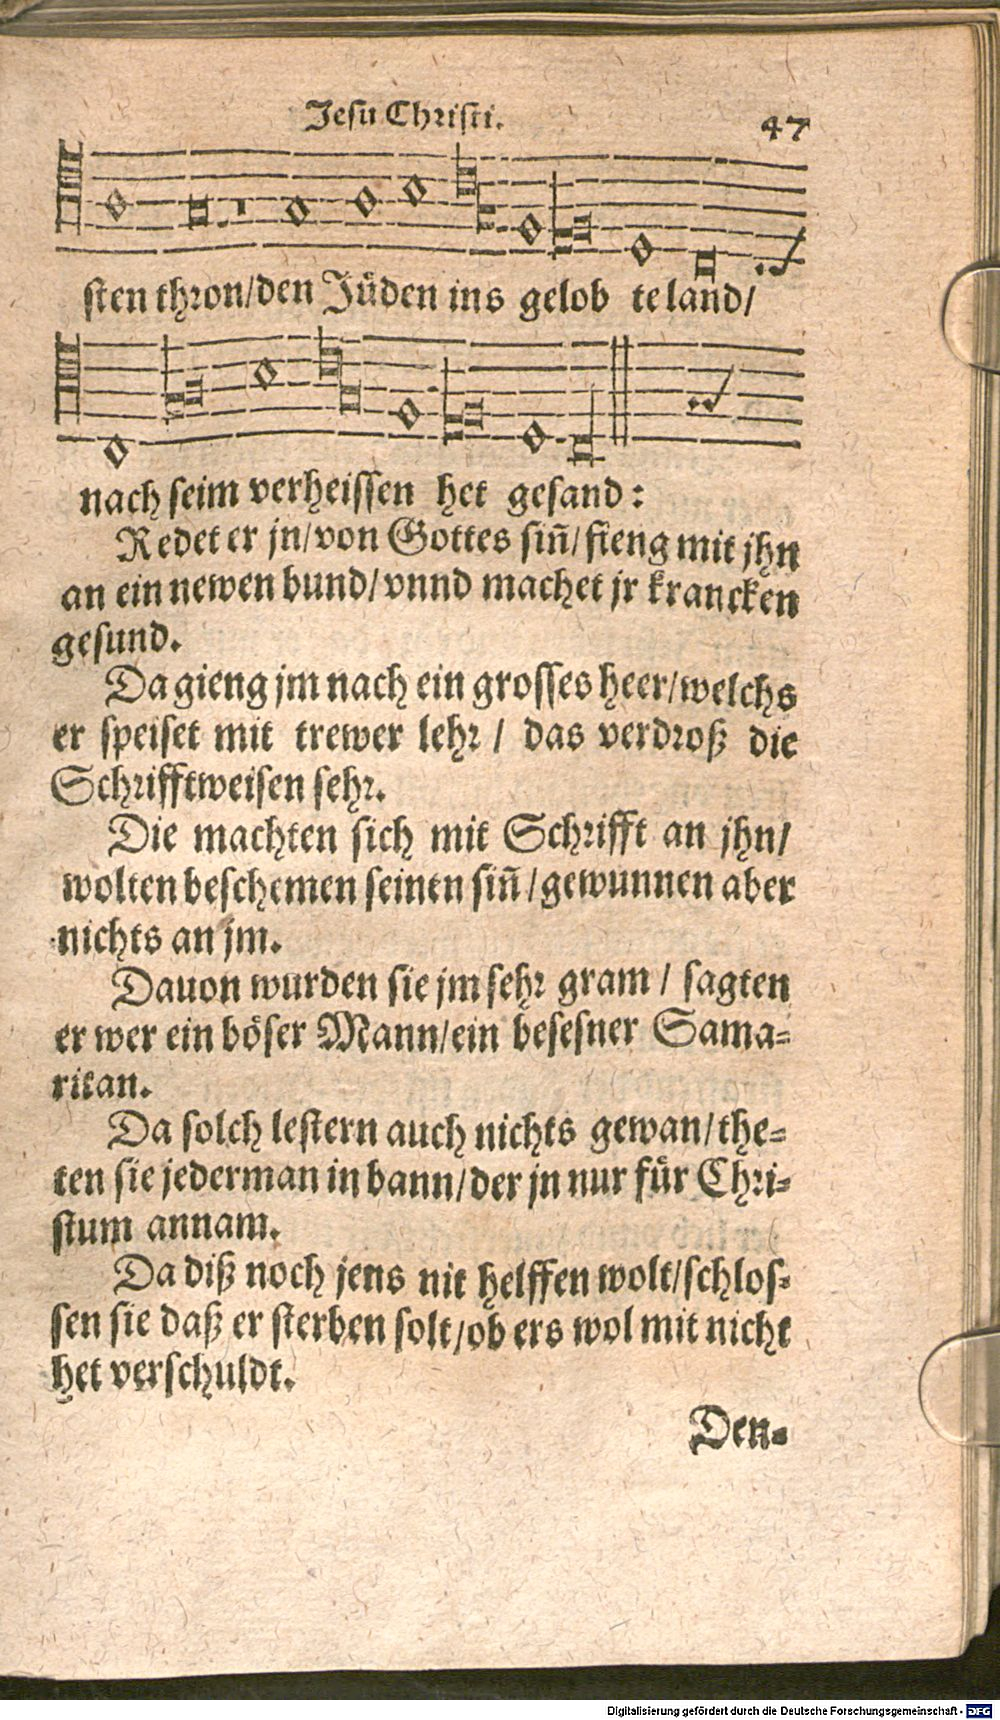 Jesu Christi. 47
sten thron/den Jüden ins gelob te land/
nach seim verheissen het gesand:
Redet er jn/von Gottes siñ/fieng mit jhn
an ein newen bund/vnnd machet jr krancken
gesund.
Da gieng jm nach ein grosses heer/welchs
er speiset mit trewer lehr / das verdroß die
Schrifftweisen sehr.
Die machten sich mit Schrifft an jhn/
wolten beschemen seinen siñ/gewunnen aber
nichts an jm.
Dauon wurden sie jm sehr gram / sagten
er wer ein böser Mann/ein besesner Sama-
ritan.
Da solch lestern auch nichts gewan/the-
ten sie jederman in bann/der jn nur für Chri-
stum annam.
Da diß noch jens nit helffen wolt/schlos-
sen sie daß er sterben solt/ob ers wol mit nicht
het verschuldt.
Den-
Digitalisierung gefördert durch die Deutsche Forschungsgemeinschaft - DFG